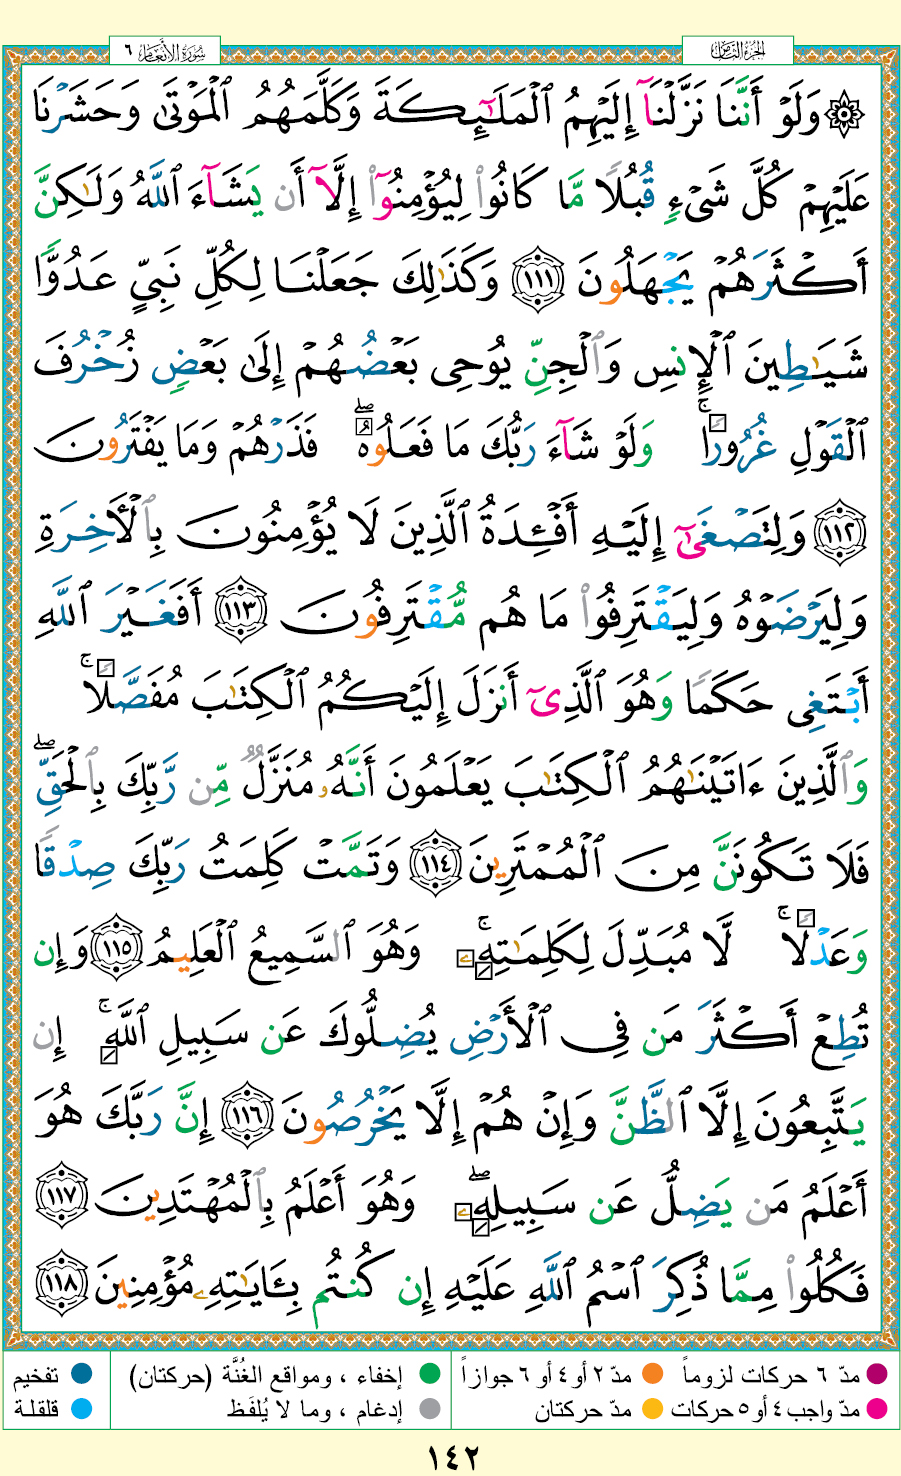 سُورَةُ الأَنْعَام ٦
الجزء الثامن
۞ وَلَوْ أَنَّنَا نَزَّلْنَآ إِلَيْهِمُ ٱلْمَلَـٰٓئِكَةَ وَكَلَّمَهُمُ ٱلْمَوْتَىٰ وَحَشَرْنَا
عَلَيْهِمْ كُلَّ شَىْءٍ قُبُلًا مَّا كَانُوا۟ لِيُؤْمِنُوٓا۟ إِلَّآ أَن يَشَآءَ ٱللَّهُ وَلَـٰكِنَّ
أَكْثَرَهُمْ يَجْهَلُونَ ١١١ وَكَذَٰلِكَ جَعَلْنَا لِكُلِّ نَبِىٍّ عَدُوًّا
شَيَـٰطِينَ ٱلْإِنسِ وَٱلْجِنِّ يُوحِى بَعْضُهُمْ إِلَىٰ بَعْضٍ زُخْرُفَ
ٱلْقَوْلِ غُرُورًا ۚ وَلَوْ شَآءَ رَبُّكَ مَا فَعَلُوهُ ۖ فَذَرْهُمْ وَمَا يَفْتَرُونَ
١١٢ وَلِتَصْغَىٰٓ إِلَيْهِ أَفْـِٔدَةُ ٱلَّذِينَ لَا يُؤْمِنُونَ بِٱلْـَٔاخِرَةِ
وَلِيَرْضَوْهُ وَلِيَقْتَرِفُوا۟ مَا هُم مُّقْتَرِفُونَ ١١٣ أَفَغَيْرَ ٱللَّهِ
أَبْتَغِى حَكَمًا وَهُوَ ٱلَّذِىٓ أَنزَلَ إِلَيْكُمُ ٱلْكِتَـٰبَ مُفَصَّلًا ۚ
وَٱلَّذِينَ ءَاتَيْنَـٰهُمُ ٱلْكِتَـٰبَ يَعْلَمُونَ أَنَّهُۥ مُنَزَّلٌ مِّن رَّبِّكَ بِٱلْحَقِّ ۖ
فَلَا تَكُونَنَّ مِنَ ٱلْمُمْتَرِينَ ١١٤ وَتَمَّتْ كَلِمَتُ رَبِّكَ صِدْقًا
وَعَدْلًا ۚ لَّا مُبَدِّلَ لِكَلِمَـٰتِهِۦ ۚ وَهُوَ ٱلسَّمِيعُ ٱلْعَلِيمُ ١١٥ وَإِن
تُطِعْ أَكْثَرَ مَن فِى ٱلْأَرْضِ يُضِلُّوكَ عَن سَبِيلِ ٱللَّهِ ۚ إِن
يَتَّبِعُونَ إِلَّا ٱلظَّنَّ وَإِنْ هُمْ إِلَّا يَخْرُصُونَ ١١٦ إِنَّ رَبَّكَ هُوَ
أَعْلَمُ مَن يَضِلُّ عَن سَبِيلِهِۦ ۖ وَهُوَ أَعْلَمُ بِٱلْمُهْتَدِينَ ١١٧
فَكُلُوا۟ مِمَّا ذُكِرَ ٱسْمُ ٱللَّهِ عَلَيْهِ إِن كُنتُم بِـَٔايَـٰتِهِۦ مُؤْمِنِينَ ١١٨
مدّ ٦ حركات لزوماً مدّ ٢ أو ٤ أو ٦ جوازاً إخفاء ، ومواقع الغُنَّة (حركتان) تفخيم
مدّ واجب ٤ أو ٥ حركات مدّ حركتان إدغام ، وما لا يُلفَظ قلقلة
١٤٢